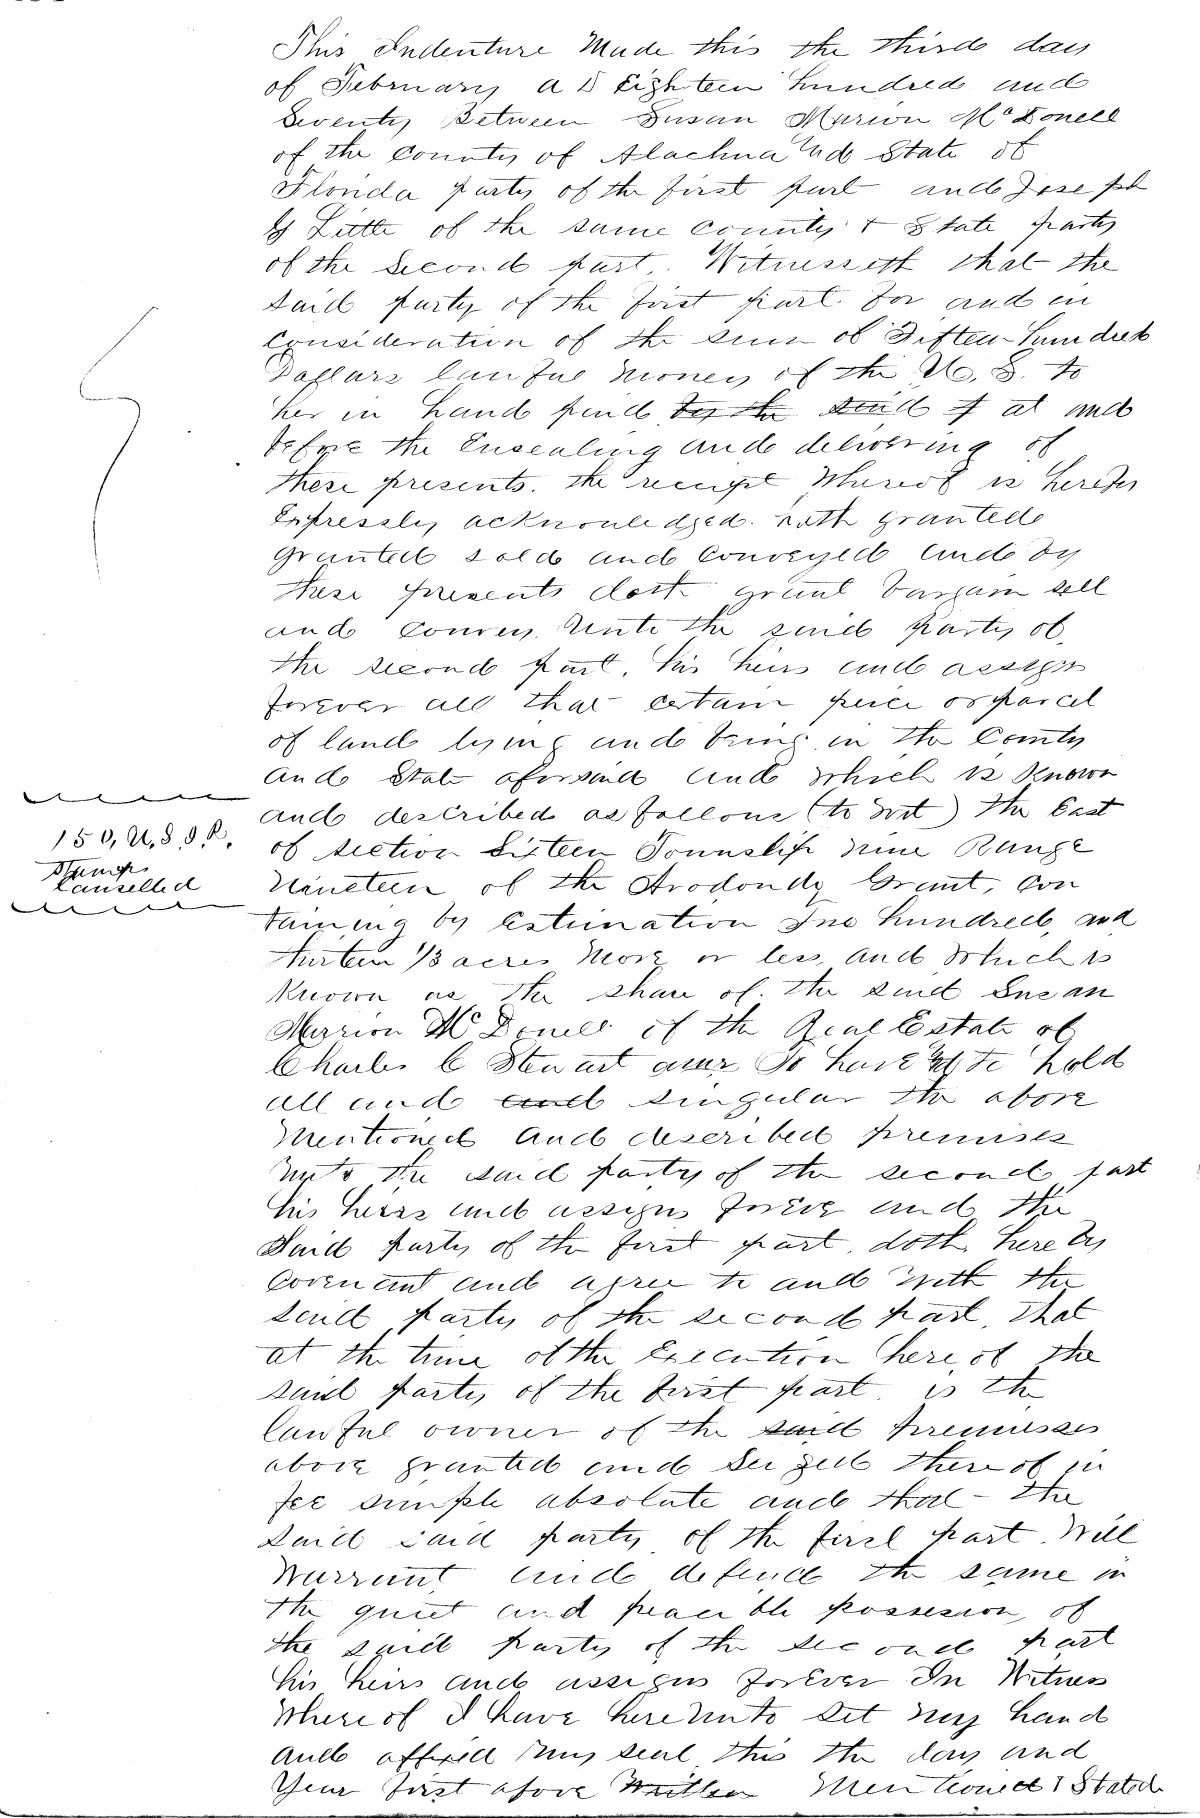 This Indenture Made this the third day
of February A D Eighteen hundred and
Seventy Between Susan Marion McDonell
of the County of Alachua and State of
Florida party of the first part and Joseph
Little of the same County & State party
of the Second part. Witnesseth that the
said party of the first part for and in
consideration of the sum of Fifteen hundred
Dollars lawful money of the U. S. to
her in hand paid by the said at and
before the Ensealing and delivering of
these presents. the receipt whereof is hereby
Expressly acknowledged. hath granted
granted sold and Conveyed and by
these presents doth grant bargain sell
and convey unto the said party of
the second part, his heirs and assigns
forever all that certain peice or parcel
of land lying and being in the County
and State aforsaid and which is Known
and described as follows (to wit) the East
150, U.S I.R.
Stamps
Cancelled
of section Sixteen Township nine Range
Nineteen of the Arodondy Grant, con
taining by Estimation One hundred and
thirteen 1/3 acres More or less, and which is
Known as the share of the said Susan
Marrion McDonell of the Real Estate of
Charles C Stewart To have to hold
all and and singular the above
Mentioned and described premises
unto the said party of the second part
his heirs and assigns forever and the
Said party of the first part, doth hereby
covenant and agree to and with the
said party of the second part, that
at the time of the Execution here of the
said party of the first part. is the
lawful owner of the said premisses
above granted and Seized there of in
fee simple absolute and that the
said said party of the first part will
Warrant and defend the same in
the quiet and peacible possesion of
the said party of the second part
his heirs and assigns forever In Witness
Where of I have here unto set my hand
and affixed my seal this the day and
Year first above Written Mentioned & Stated